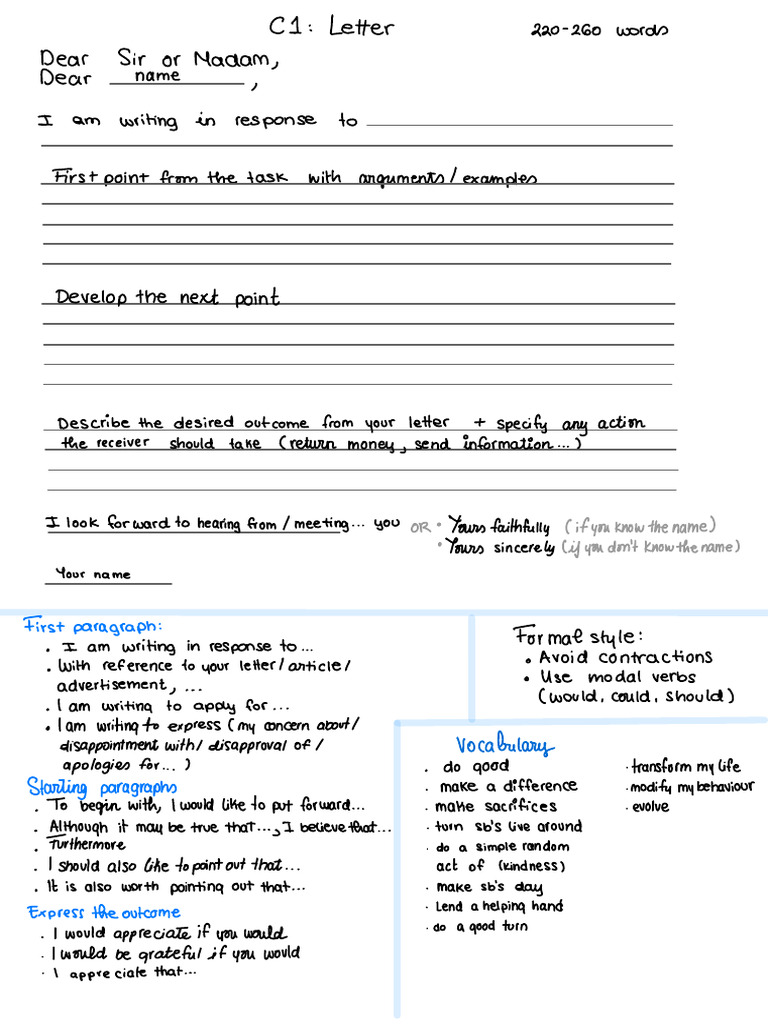 C1: Letter
220-260 words
Dear Sir or Madam,
Dear name,
I am writing in response to
First point from the task with arguments/examples
Develop the next point
Describe the desired outcome from your letter + specify any action
the receiver should take (return money, send information...)
I look forward to hearing from / meeting... you OR • Yours faithfully (if you know the name)
• Yours sincerely (if you don't know the name)
Your name
First paragraph:
• I am writing in response to...
• With reference to your letter/article/
advertisement, ...
• I am writing to apply for...
• I am writing to express (my concern about/
disappointment with/ disapproval of /
apologies for...)
Starting paragraphs
• To begin with, I would like to put forward...
• Although it may be true that..., I believe that...
• Furthermore
• I should also like to point out that...
• It is also worth pointing out that...
Express the outcome
• I would appreciate if you would
• I would be grateful if you would
• I appreciate that...
Formal style:
• Avoid contractions
• Use modal verbs
(would, could, should)
Vocabulary
• do good
• make a difference
• make sacrifices
• turn sb's live around
• do a simple random
act of (kindness)
• make sb's day
• Lend a helping hand
• do a good turn
• transform my life
• modify my behaviour
• evolve